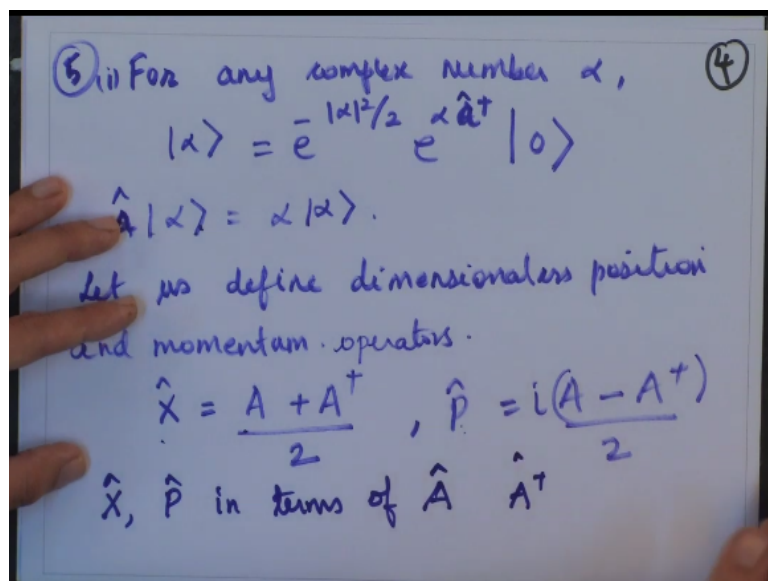 ⑤ (i) For any complex number α, ④
|α⟩ = e^{-|α|²/2} e^{αâ†} |0⟩
Â|α⟩ = α|α⟩.
Let us define dimensionless position
and momentum operators.
X̂ = (A + A†)/2 , P̂ = i(A − A†)/2
X̂, P̂ in terms of Â Â†